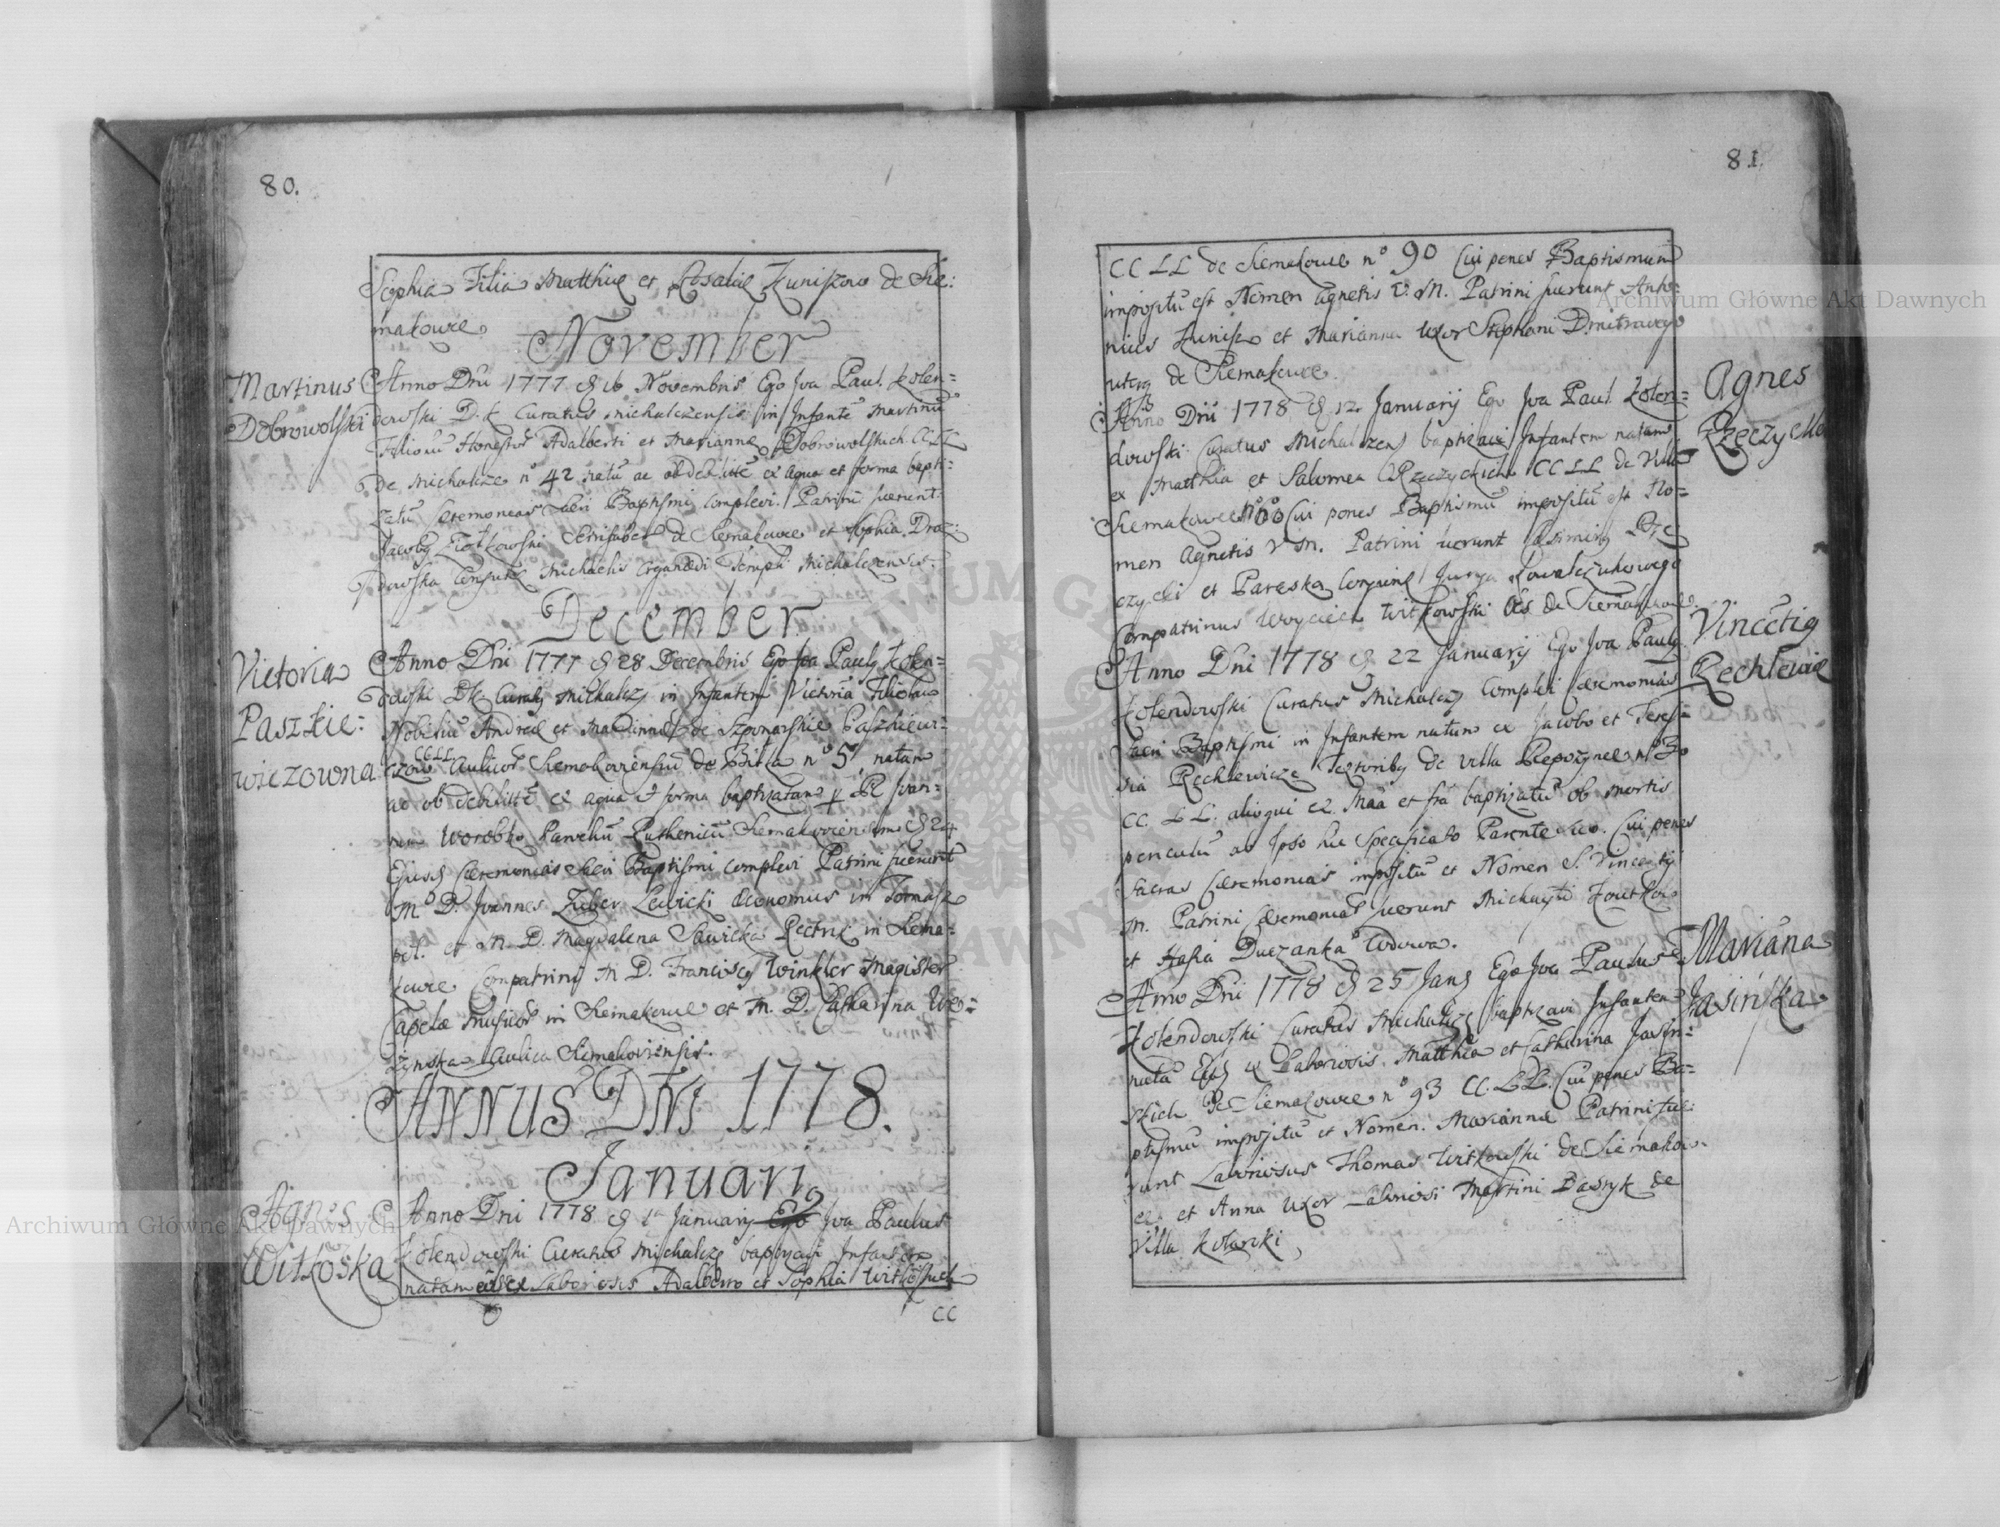 80.
Sophia Filia Matthiæ et Rosaliæ Juniszow de Sie:
makowce
November
Martinus
Dobrowolski
Anno Dni 1777 d 16 Novembris Ego Jva Paul. Kolen=
dowski D. k Curatus Michalczensis in Infante Martinu
Filiolu Honestor Adalberti et Marianne Dobrowolskich CC LL
de Michalcze no 42 natu ac ob debilitte ex aqua et forma bapti=
zatu Cæremonias Sacri Baptismi complevi. Patrini fuerunt
Jacoby de Siemakowce et Sophia Droz:
dowska Michaelis Organædi Templi Michalczensis.
December
Victoria
Paszkie:
wiczowna
Anno Dni 1777 d 28 Decembris Ego Jva Pauly Kolen=
dowski Dk Curaty Michalcz in Infantem Victoria Filiolam
Nobiliu Andreæ et Mariannæ de Szponarskie Paszkiewi=
czow CC LL Aulicor Siemakoviensiu de Villa no 5 natam
ac ob debilitte ex aqua et forma baptizatam p PR Joan=
nem Worobko Parochu Ruthenicu Siemakoviensem d 24
Ejusd Cæremonias Sacri Baptismi complevi Patrini fuerunt
M. D. Joannes Zuber Lewicki Œconomus in
et M. D. Magdalena Sawicka in Siema=
kowce Compatrini M D. Franciscy Winkler Magister
Capelæ Musicor in Siemakowce et M. D. Catharina We=
zynska Aulica Siemakoviensis.
ANNUS DNI 1778.
Januari
Agnes
Witkoska
Anno Dni 1778 d 1a Januarij Ego Jva Paulus
Kolendowski Curatus Michalcz baptizavi Infantem
natam ex Laboriosis Adalberto et Sophia Witkoskich
CC
81.
CC LL de Siemakowce no 90 Cui penes Baptismum
impositu est Nomen Agnetis V. M. Patrini fuerunt Anto=
nius Junisz et Marianna Uxor Stephani Dmitrowego
uterq de Siemakowce.
Agnes
Rzeczycka
Anno Dni 1778 d 12 Januarij Ego Jva Paul Kolen=
dowski Curatus Michalczens baptizavi Infantem natam
ex Matthia et Salomea Rzeczyckich CC LL de Villa
Siemakowce no 60 Cui penes Baptismu impositu est No=
men Agnetis V M. Patrini fuerunt Casimiry Rze
czycki et Paraska Jurija Kowalczukowego
Compatrinus Woyciech Witkowski Oes de Siemakowce
Vincēty
Rechlewic
Anno Dni 1778 d 22 Januarij Ego Jva Pauly
Kolendowski Curatus Michalcz Complevi Cæremonias
Sacri Baptismi in Infantem natum ex Jacobo et Tere=
sia Rechlewicze de Villa Repozynce no 30
CC. LL. alioqui ex Maa et fra baptizatu ob mortis
periculu ab Ipso hic Specificato Parente suo. Cui penes
Sacras Cæremonias impositu est Nomen S. Vincentij
M. Patrini Cæremoniar fuerunt Michayło
et Hasia Duczanka Wdowa.
Mariana
Jasińska
Anno Dni 1778 d 25 Jany Ego Jva Paulus
Kolendowski Curatus Michalcz baptizavi Infantem
natu Ejus ex Laboriosis Matthia et Catharina Jasin=
skich De Siemakowce no 93 CC. LL. Cui penes Ba=
ptismu impositu est Nomen. Marianna Patrini fue
runt Laboriosus Thomas Witkowski de Siemakow=
ce et Anna Uxor Laboriosi Martini Pastyk de
Villa Kolanki
Archiwum Główne Akt Dawnych
Archiwum Główne Akt Dawnych